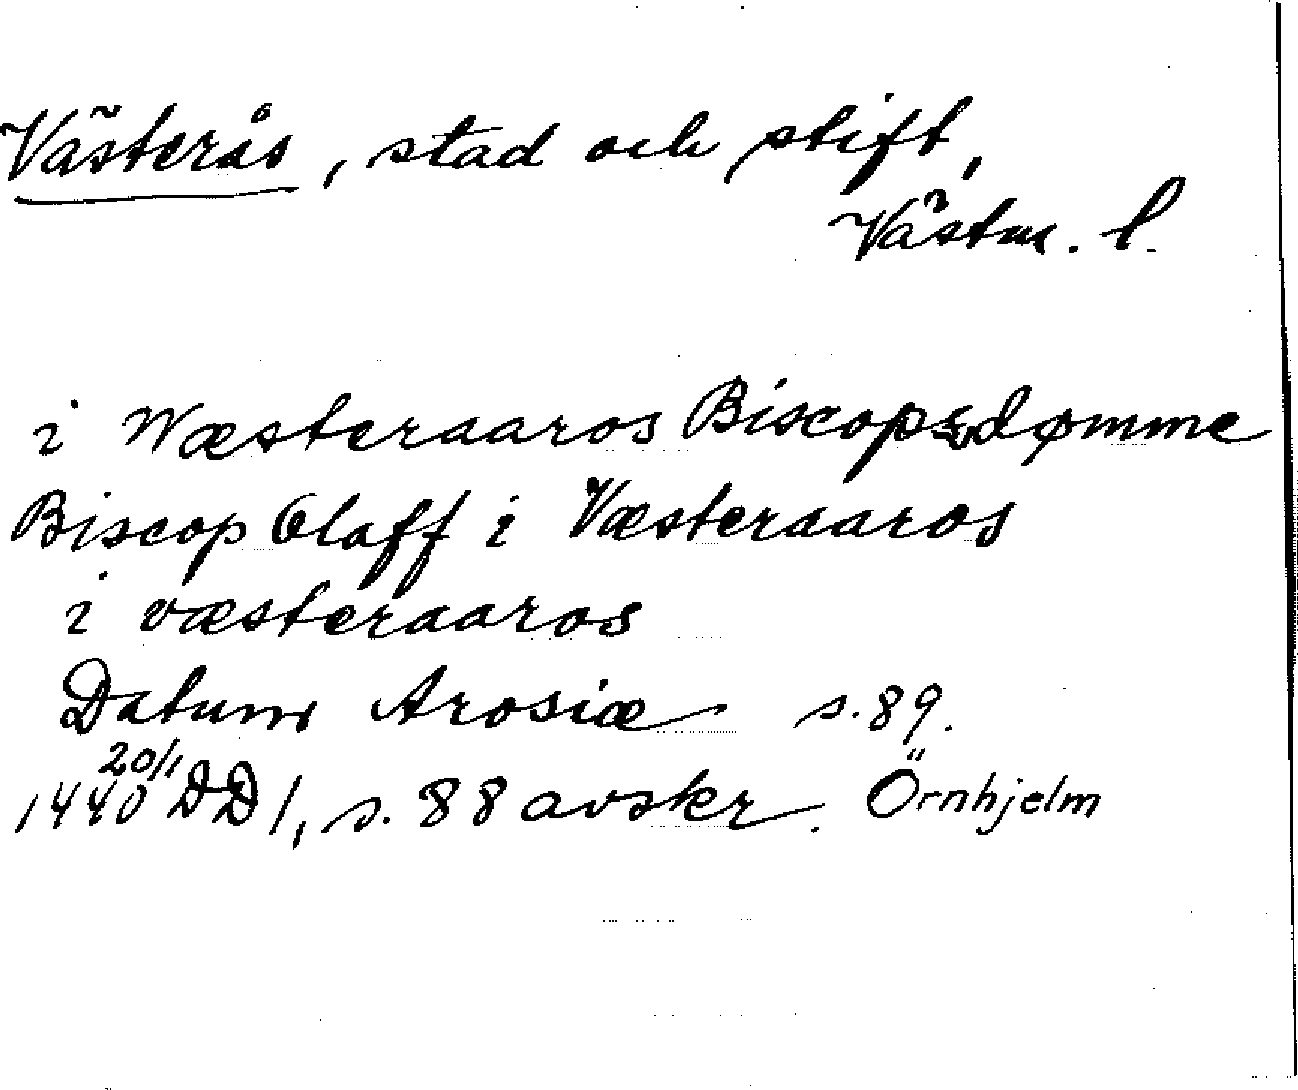 Västerås, stad och stift,
Västm. l.
i Wæsteraaros Biscopsdømme
Biscop Olaff i Væsteraaros
i væsteraaros
Datum Arosiæ s. 89.
1440 20/1 DD 1, s. 88 avskr. Örnhjelm